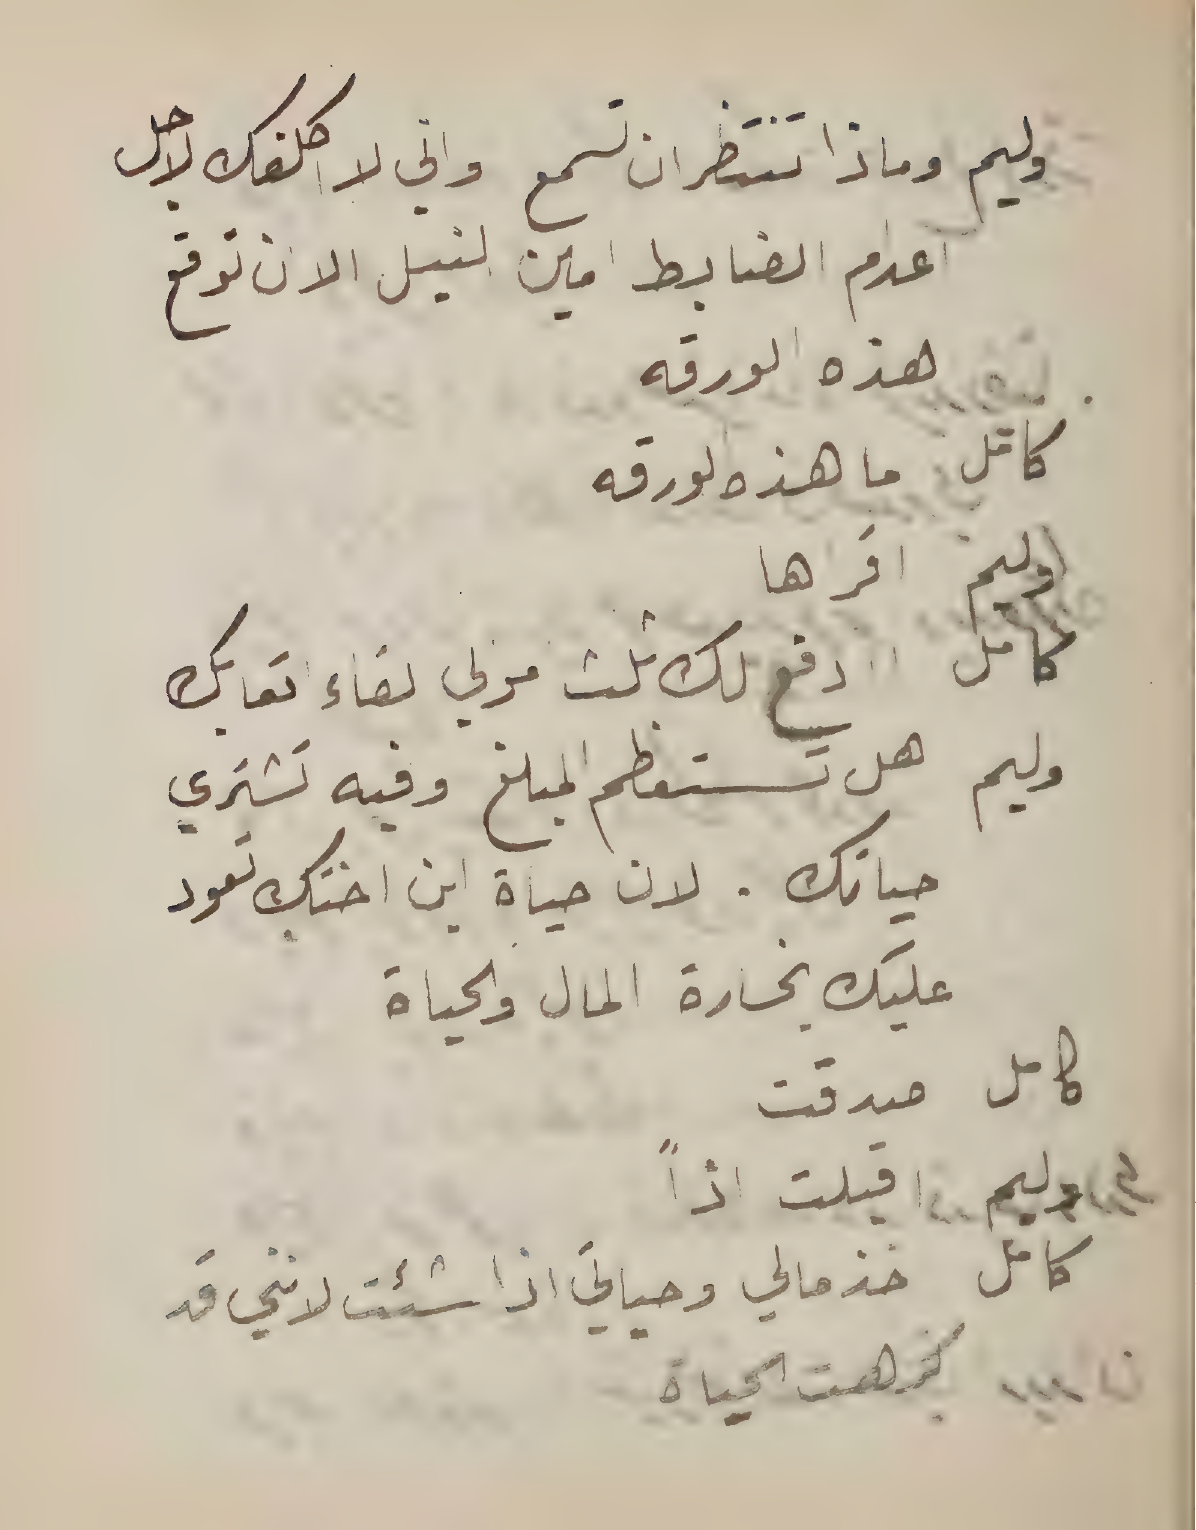 وليم وماذا تنتظر ان تسمع واني لا اكلفك لاجل
اعدام الضابط امين لنيل الان توقع
هذه الورقه
كامل ما هذه الورقه
وليم اقراها
كامل اادفع لك ثلث منزلي لقاء اتعابك
وليم هل تستعظم المبلغ وفيه تشتري
حياتك . لان حياة ابن اختك تعود
عليك بخسارة المال والحياة
كامل صدقت
وليم اقبلت اذاً
كامل خذ مالي وحياتي اذا شئت لانني قد
كرهت الحياة